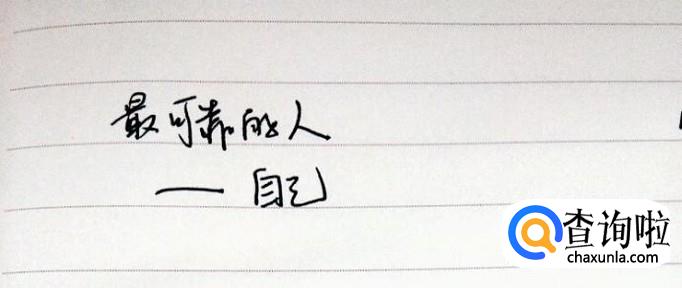 最可靠的人
— 自己
查询啦
chaxunla.com